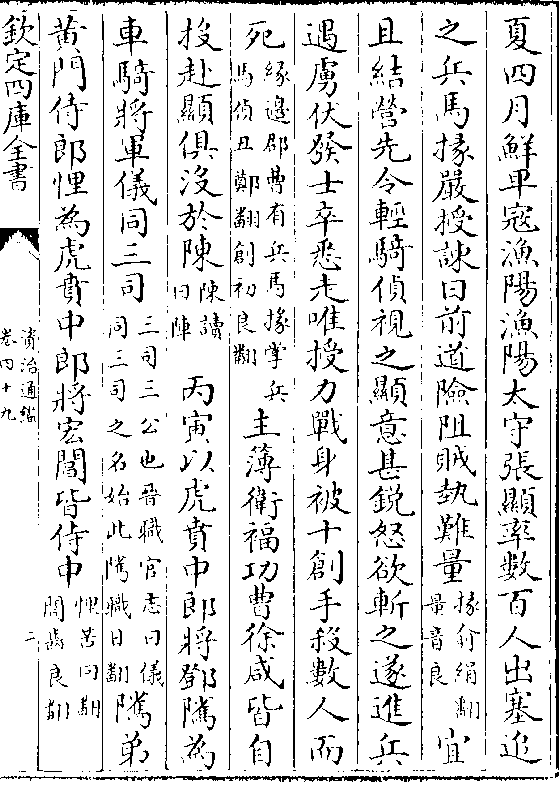 夏四月鮮卑寇漁陽漁陽太守張顯率數百人出塞追
之兵馬掾嚴授諫曰前道險阻賊埶難量掾俞絹翻量音良宜
且結營先令輕騎偵視之顯意甚銳怒欲斬之遂進兵
遇虜伏發士卒悉走唯授力戰身被十創手殺數人而
死緣邊郡曹有兵馬掾掌兵馬偵丑鄭翻創初良翻主簿衛福功曹徐咸皆自
投赴顯俱沒於陳陳讀曰陣丙寅以虎賁中郎將鄧隲為
車騎將軍儀同三司三司三公也晉職官志曰儀同三司之名始此隲職日翻隲弟
黃門侍郎悝為虎賁中郎將宏閶皆侍中悝苦回翻閶齒良翻
欽定四庫全書
資治通鑑
卷四十九
二